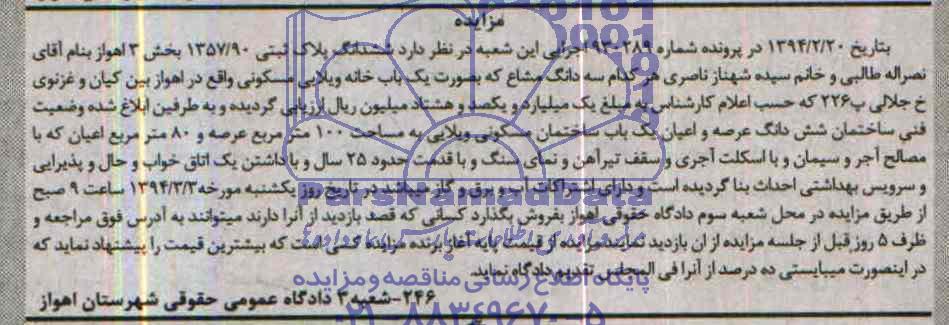 مزایده
بتاریخ ۱۳۹۴/۲/۲۰ در پرونده شماره ۹۳۰۲۸۹ اجرایی این شعبه در نظر دارد ششدانگ پلاک ثبتی ۱۳۵۷/۹۰ بخش ۳ اهواز بنام آقای
نصراله طالبی و خانم سیده شهناز ناصری هر کدام سه دانگ مشاع که بصورت یک باب خانه ویلایی مسکونی واقع در اهواز بین کیان و غزنوی
خ جلالی پ۲۲۶ که حسب اعلام کارشناس به مبلغ یک میلیارد و یکصد و هشتاد میلیون ریال ارزیابی گردیده و به طرفین ابلاغ شده وضعیت
فنی ساختمان شش دانگ عرصه و اعیان یک باب ساختمان مسکونی ویلایی به مساحت ۱۰۰ متر مربع عرصه و ۸۰ متر مربع اعیان که با
مصالح آجر و سیمان و با اسکلت آجری و سقف تیرآهن و نمای سنگ و با قدمت حدود ۲۵ سال و با داشتن یک اتاق خواب و حال و پذیرایی
و سرویس بهداشتی احداث بنا گردیده است و دارای اشتراکات آب و برق و گاز میباشد در تاریخ روز یکشنبه مورخه ۱۳۹۴/۳/۳ ساعت ۹ صبح
از طریق مزایده در محل شعبه سوم دادگاه حقوقی اهواز بفروش بگذارد کسانی که قصد بازدید از آنرا دارند میتوانند به آدرس فوق مراجعه و
ظرف ۵ روز قبل از جلسه مزایده از ان بازدید نمایند مزایده از قیمت پایه آغاز برنده مزایده کسی است که بیشترین قیمت را پیشنهاد نماید که
در اینصورت میبایستی ده درصد از آنرا فی المجلس تقدیم دادگاه نماید.
۲۴۶-شعبه ۳ دادگاه عمومی حقوقی شهرستان اهواز
ParsNamadData
پایگاه اطلاع رسانی مناقصه و مزایده
۰۲۱-۸۸۳۴۹۶۷۰-۵